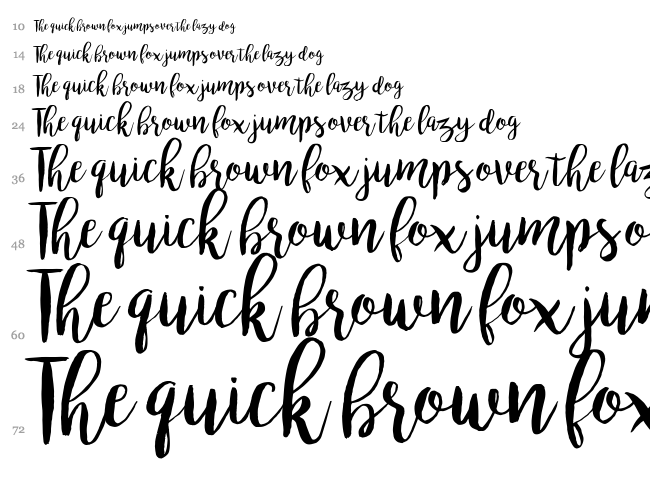 10 The quick brown fox jumps over the lazy dog
14 The quick brown fox jumps over the lazy dog
18 The quick brown fox jumps over the lazy dog
24 The quick brown fox jumps over the lazy dog
36 The quick brown fox jumps over the laz
48 The quick brown fox jumps o
60 The quick brown fox jum
72 The quick brown fox